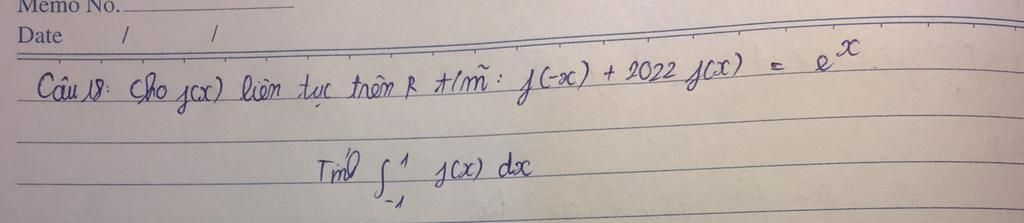 Memo No.
Date / /
Câu 18: Cho f(x) liên tục trên R t/mã: f(-x) + 2022 f(x) = e^x
Tính ∫_{-1}^{1} f(x) dx